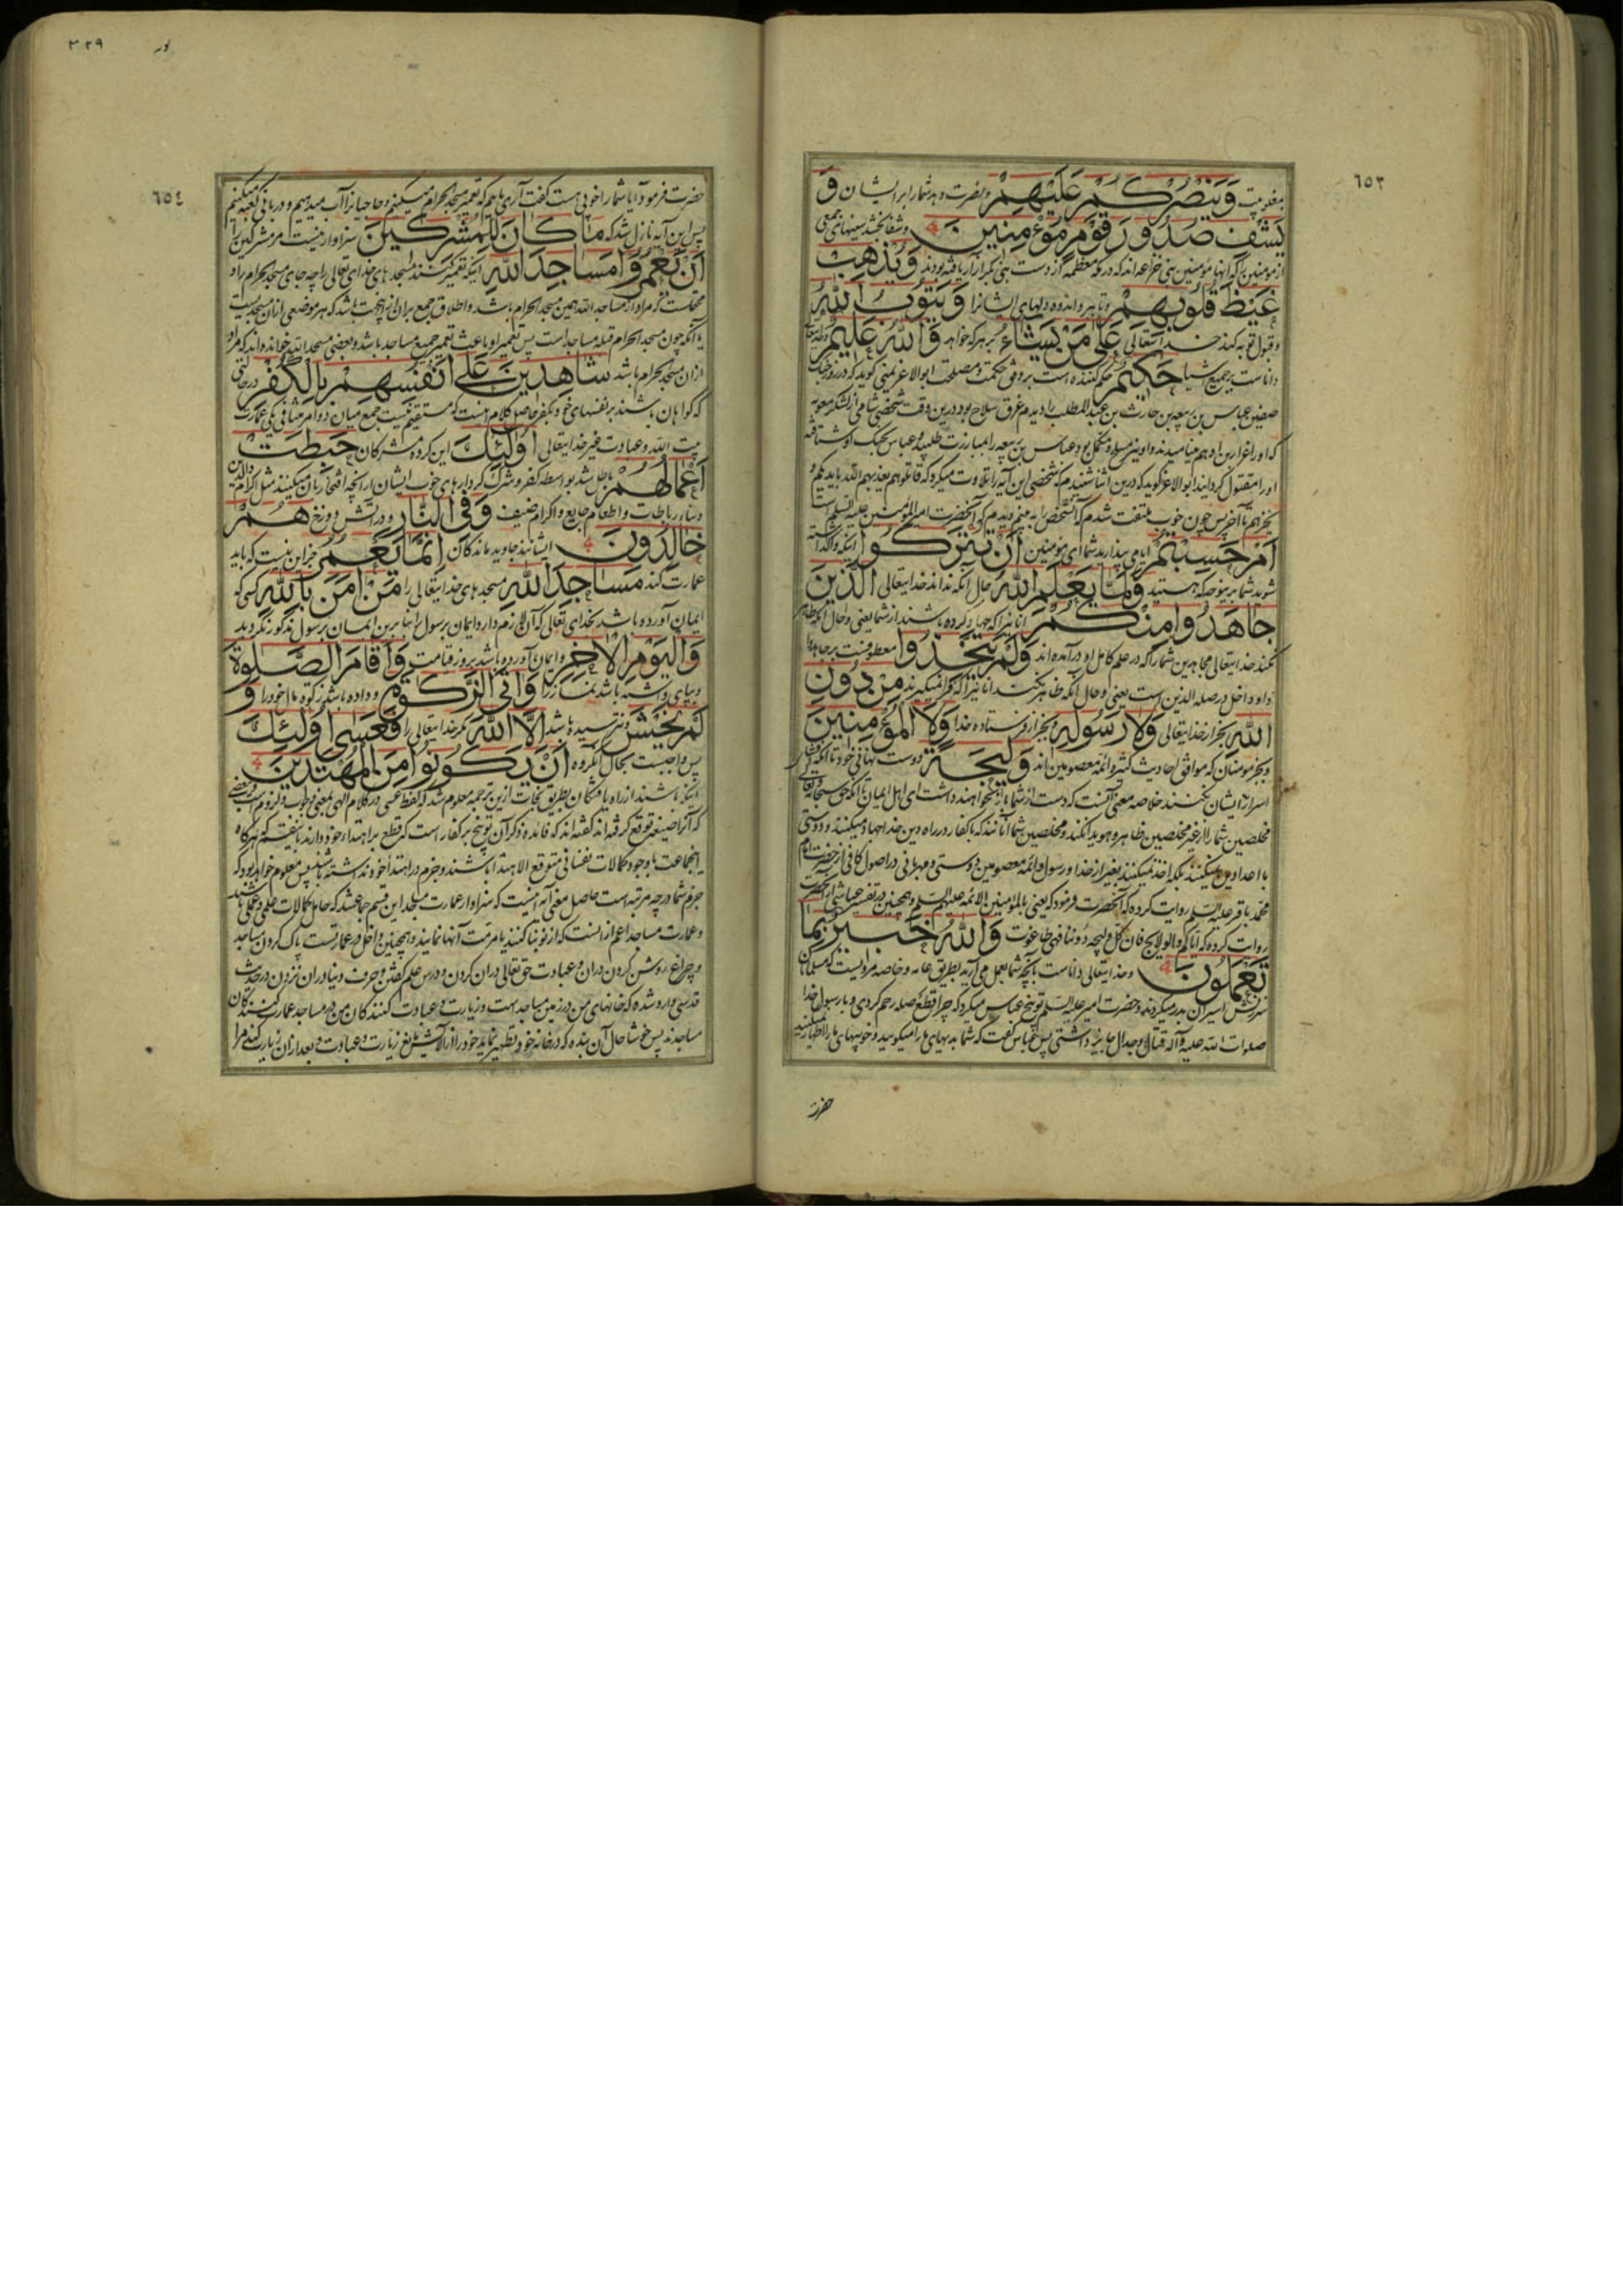 ٦٥٣
وَيَنْصُرْكُمْ عَلَيْهِمْ ونصرت دهد شما را بر ایشان وَ
يَشْفِ صُدُورَ قَوْمٍ مُؤْمِنِينَ وشفا بخشد سینهای جمعی
از مؤمنین که انها مؤمنین بنی خزاعه اند که در مکه معظمه از دست بنی بکر ازار یافته بودند وَيُذْهِبْ
غَيْظَ قُلُوبِهِمْ وتا ببرد اندوه دلهای ایشانرا وَيَتُوبُ اللَّهُ
وقبول توبه کند خدایتعالی عَلَى مَنْ يَشَاءُ بر هر که خواهد وَاللَّهُ عَلِيمٌ
داناست بر جمیع اشیا حَكِيمٌ حکم کننده است بر وفق حکمت ومصلحت ابو الاغر تمیمی کوید که در روز جنک
صفین عباس بن ربیعة بن حارث بن عبد المطلب را دیدم غرق سلاح بود درین وقت شخصی شامی از لشکر معویه
که او را غرار بن ادهم مینامیدند واو نیز مسلح ومکمل بود عباس بن ربیعه را بمبارزت طلبید وعباس بجنک او شتافته
او را مقتول کردانید ابو الاغر کوید که درین اثنا شنیدم که شخصی این آیه را تلاوت میکرد که قاتلوهم یعذبهم الله بایدیکم و
یخزهم تا آخر پس چون خوب ملتفت شدم که آن شخص را ببینم دیدم که آنحضرت امیر المؤمنین علیه السلم است
أَمْ حَسِبْتُمْ ایا می پندارید شما ای مؤمنین أَنْ تُتْرَكُوا اینکه واکذاشته
شوید شما بر نحو که هستید وَلَمَّا يَعْلَمِ اللَّهُ حال آنکه نداند خدایتعالی الَّذِينَ
جَاهَدُوا مِنْكُمْ انانیرا که جهاد کرده باشند از شما یعنی وحال آنکه ظاهر
نکند خدایتعالی مجاهدین شما را که در علم کامل او در آمده اند وَلَمْ يَتَّخِذُوا معطوفست بر جاهدوا
و او داخل در صله الذین است یعنی وحال انکه ظاهر نکند انانیرا که فرا نمیکیرند مِنْ دُونِ
اللَّهِ بجز از خدایتعالی وَلَا رَسُولِهِ وبجز از فرستاده خدا وَلَا الْمُؤْمِنِينَ
وبجز مومنان که موافق احادیث کثیره ائمه معصومین اند وَلِيجَةً دوست نهانی خود تا آنکه فشای
اسرار با ایشان نکنند خلاصه معنی آنست که دست از شما باز نخواهند داشت ای اهل ایمان تا آنکه حق سبحانه وتعالی
مخلصین شما را از غیر مخلصین ظاهر وهویدا نکند ومخلصین شما آنانند که با کفار در راه دین خدا جهاد میکنند ودوستی
با اعداء دین نمیکنند بلکه اخذ نمیکنند بغیر از خدا ورسول وائمه معصومین دوستی ومهربانی در اصول کافی از حضرت امام
محمد باقر علیه السلم روایت کرده که آنحضرت فرمود که یعنی بالمؤمنین الائمه علیهم السلم وهمچنین در تفسیر عیاشی از آنحضرت
روایت کرده که ایاکم والولایج فان کل ولیجة دوننا فهی طاغوت وَاللَّهُ خَبِيرٌ بِمَا
تَعْمَلُونَ وخدایتعالی داناست بآنچه شما بعمل می آرید بطریق عامه وخاصه مرویست که مسلمانان
سرزنش اسیران بدر میکردند وحضرت امیر علیه السلم توبیخ عباس میکرد که چرا قطع صله رحم کردی وبا رسول خدا
صلوات الله علیه وآله قتال وجدال جایز داشتی پس عباس کفت که شما بدیهای ما را میکویید وخوبیهای ما را اظهار نمیکنید
حضرت
٣٢٩
٦٥٤
حضرت فرمود آیا شما را خوبی هست کفت آری ما همه که تعمیر مسجد الحرام میکنیم وحاجیانرا آب میدهیم ودربانی کعبه میکنیم
پس این آیه نازل شد که مَا كَانَ لِلْمُشْرِكِينَ سزاوار نیست مر مشرکین را
أَنْ يَعْمُرُوا مَسَاجِدَ اللَّهِ اینکه تعمیر کنند مسجدهای خدای تعالی را چه جای مسجد الحرام را و
محتملست که مراد از مساجد الله همین مسجد الحرام باشد واطلاق جمع بر ان ازین جهت باشد که هر موضعی از ان مسجدیست
یا آنکه چون مسجد الحرام قبله مساجد است پس تعمیر او باعث تعمیر جمیع مساجد باشد وبعضی مسجد الله خوانده اند که مراد
از ان مسجد الحرام باشد شَاهِدِينَ عَلَى أَنْفُسِهِمْ بِالْكُفْرِ در حالتی
که کواهان باشند بر نفسهای خود بکفر حاصل کلام اینست که مستقیم نیست جمع میان دو امر متنافی یکی عمارت
بیت الله وعبادت غیر خدایتعالی أُولَئِكَ این کروه مشرکان حَبِطَتْ
أَعْمَالُهُمْ باطل شد بواسطه کفر وشرک کردارهای خوب ایشان از انچه افتخار بان میکنند مثل اکرام والدین
وبناء رباطات واطعام جایع واکرام ضیف وَفِي النَّارِ ودر آتش دوزخ هُمْ
خَالِدُونَ ایشانند جاوید ماندکان إِنَّمَا يَعْمُرُ جز این نیست که باید
عمارت کند مَسَاجِدَ اللَّهِ مسجدهای خدایتعالی را مَنْ آمَنَ بِاللَّهِ کسی که
ایمان آورده باشد بخدای تعالی
وَالْيَوْمِ الْآخِرِ وایمان آورده باشد بروز قیامت وَأَقَامَ الصَّلَوةَ
وبپای داشته باشد نماز را وَآتَى الزَّكَوةَ وداده باشد زکوة مال خود را وَ
لَمْ يَخْشَ ونترسیده باشد إِلَّا اللَّهَ مکر خدایتعالی را فَعَسَى أُولَئِكَ
پس واجبست بحال آنکروه أَنْ يَكُونُوا مِنَ الْمُهْتَدِينَ
اینکه باشند از راه یافتکان بطریق نجات ازین ترجمه معلوم شد که لفظ عسی در کلام الهی بمعنی وجوب ولزوم است وبعضی
که آنرا صیغه توقع کرفته اند کفته اند که فایده ذکر آن توبیخ بر کفار است که قطع بر اهتداء خود دارند باینکه هر کاه
اینجماعت با وجود کمالات نفسانی متوقع الاهتدا باشند وجزم در اهتداء خود نداشته باشند پس معلوم خواهد بود که
جزم شما در چه مرتبه است حاصل معنی آیه اینست که سزاوار عمارت مسجد این قسم جماعتند که حامل کمالات علمی وعملی باشند
وعمارت مساجد اعم از انست که از نو بنا کنند یا مرمت آنها نمایند وهمچنین داخل در عمارتست پاک کردن مساجد
وچراغ روشن کردن در ان وعبادت حق تعالی در ان کردن ودرس علم کفتن وحرف دنیا در ان نزدن در حدیث
قدسی وارد شده که خانهای من در زمین مساجد است وزیارت وعبادت کنندکان من در مساجد عمارت کنندکان
مساجدند پس خوشا حال آن بنده که در خانه خود تطهیر نماید خود را از آلایش زیارت وعبادت وبعد از ان زیارت کند مرا